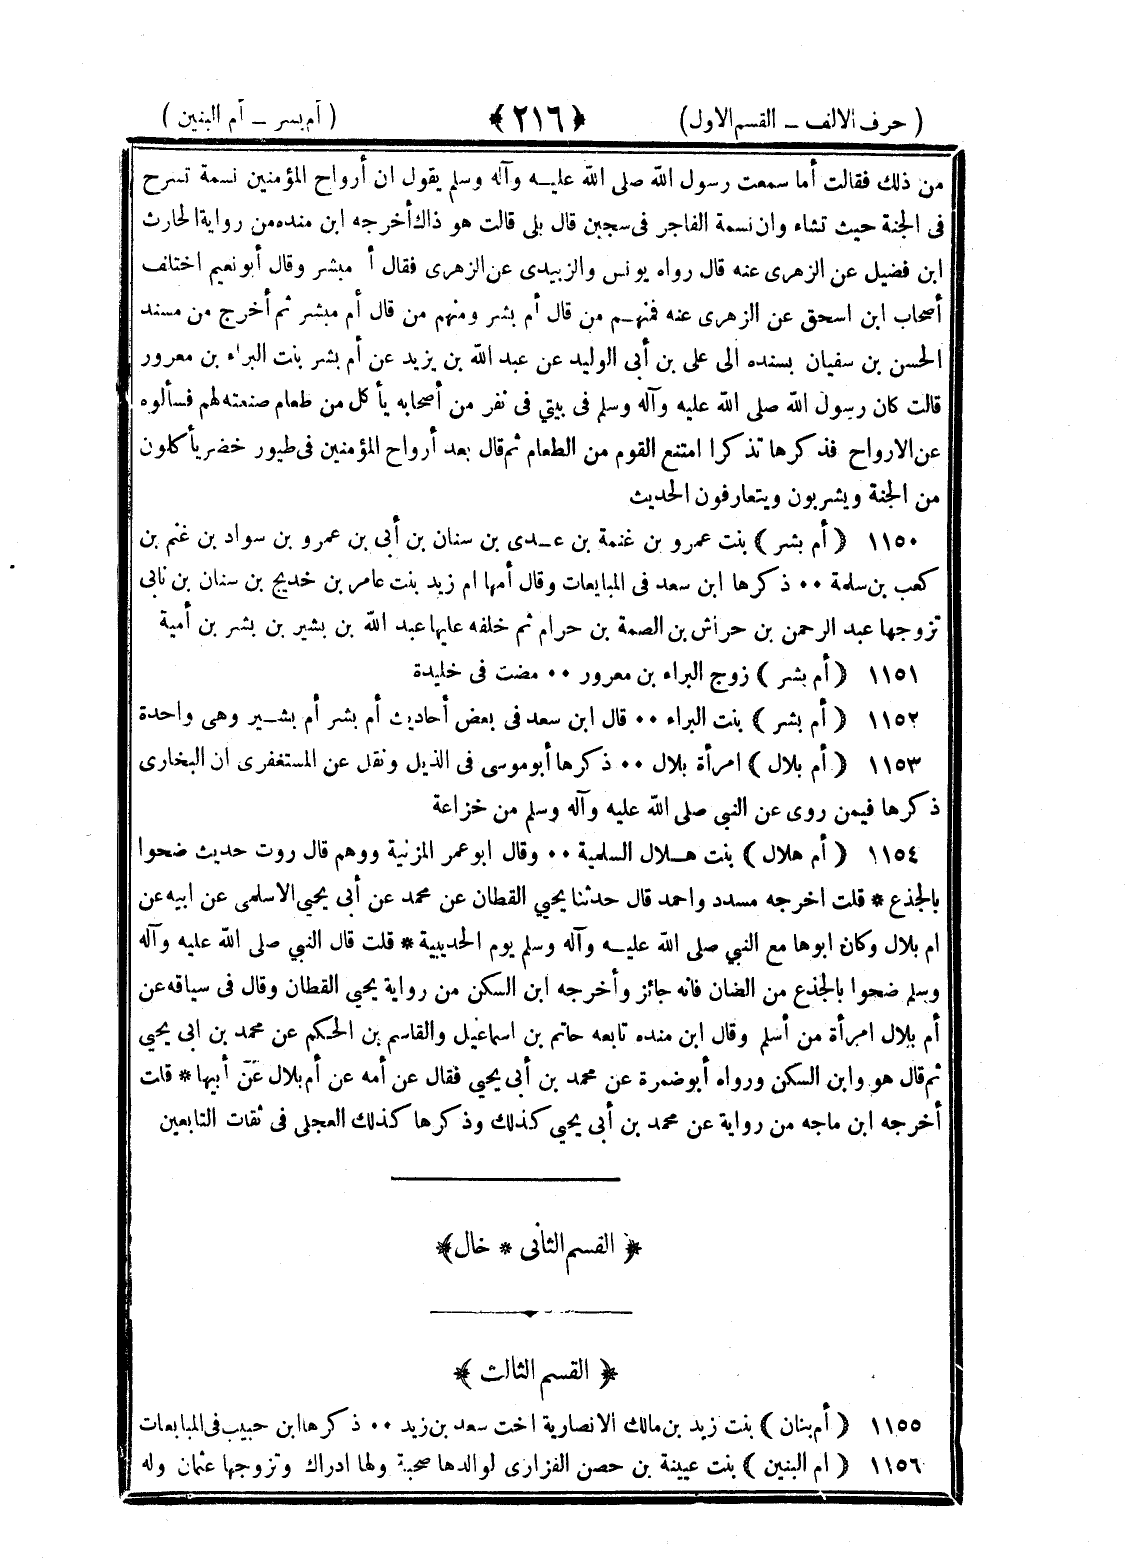 ( حرف الالف ــ القسم الاول) ﴿ ٢١٦ ﴾ ( أم بسر ــ أم البنين )
من ذلك فقالت أما سمعت رسول الله صلى الله عليه وآله وسلم يقول ان أرواح المؤمنين نسمة تسرح
فى الجنة حيث تشاء وان نسمة الفاجر فى سجين قال بلى قالت هو ذاك أخرجه ابن منده من رواية الحارث
ابن فضيل عن الزهرى عنه قال رواه يونس والزبيدى عن الزهرى فقال أ مبشر وقال أبو نعيم اختلف
أصحاب ابن اسحق عن الزهرى عنه فمنهم من قال أم بشر ومنهم من قال أم مبشر ثم أخرج من مسند
الحسن بن سفيان بسنده الى على بن أبى الوليد عن عبد الله بن يزيد عن أم بشر بنت البراء بن معرور
قالت كان رسول الله صلى الله عليه وآله وسلم فى بيتي فى نفر من أصحابه يأكل من طعام صنعته لهم فسألوه
عن الارواح فذكرها تذكرا امتنع القوم من الطعام ثم قال بعد أرواح المؤمنين فى طيور خضر يأكلون
من الجنة ويشربون ويتعارفون الحديث
١١٥٠ ( أم بشر ) بنت عمرو بن غنمة بن عدى بن سنان بن أبى بن عمرو بن سواد بن غنم بن
كعب بن سلمة ٠٠ ذكرها ابن سعد فى المبايعات وقال أمها ام زيد بنت عامر بن خديج بن سنان بن نابى
تزوجها عبد الرحمن بن حراش بن الصمة بن حرام ثم خلفه عليها عبد الله بن بشير بن بشر بن أمية
١١٥١ ( أم بشر ) زوج البراء بن معرور ٠٠ مضت فى خليدة
١١٥٢ ( أم بشر ) بنت البراء ٠٠ قال ابن سعد فى بعض أحاديث أم بشر أم بشير وهى واحدة
١١٥٣ ( أم بلال ) امرأة بلال ٠٠ ذكرها أبو موسى فى الذيل ونقل عن المستغفرى ان البخارى
ذكرها فيمن روى عن النبى صلى الله عليه وآله وسلم من خزاعة
١١٥٤ ( أم هلال ) بنت هلال السلمية ٠٠ وقال ابو عمر المزنية ووهم قال روت حديث ضحوا
بالجذع * قلت اخرجه مسدد واحمد قال حدثنا يحيي القطان عن محمد عن أبى يحيي الاسلمى عن ابيه عن
ام بلال وكان ابوها مع النبي صلى الله عليه وآله وسلم يوم الحديبية * قلت قال النبي صلى الله عليه وآله
وسلم ضحوا بالجذع من الضان فانه جائز وأخرجه ابن السكن من رواية يحيي القطان وقال فى سياقه عن
أم بلال امرأة من أسلم وقال ابن منده تابعه حاتم بن اسماعيل والقاسم بن الحكم عن محمد بن ابى يحيي
ثم قال هو وابن السكن ورواه أبو ضمرة عن محمد بن أبى يحيي فقال عن أمه عن أم بلال عن أبيها * قلت
أخرجه ابن ماجه من رواية عن محمد بن أبى يحيي كذلك وذكرها كذلك العجلى فى ثقات التابعين
﴿ القسم الثانى * خال ﴾
﴿ القسم الثالث ﴾
١١٥٥ ( أم بنان ) بنت زيد بن مالك الانصارية اخت سعد بن زيد ٠٠ ذكرها ابن حبيب فى المبايعات
١١٥٦ ( ام البنين ) بنت عيينة بن حصن الفزارى لوالدها صحبة ولها ادراك وتزوجها عثمان وله